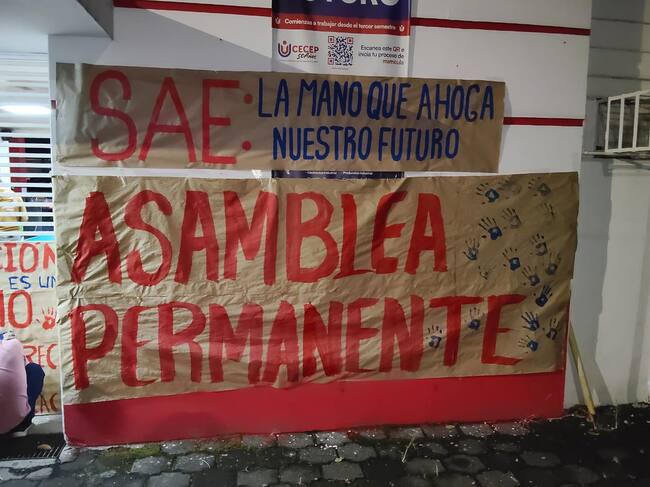 Comienzas a trabajar desde el tercer semestre
CECEP
Escanea este QR e
inicia tu proceso de
matrícula
SAE: LA MANO QUE AHOGA
NUESTRO FUTURO
ASAMBLEA
PERMANENTE
CION
ES UN